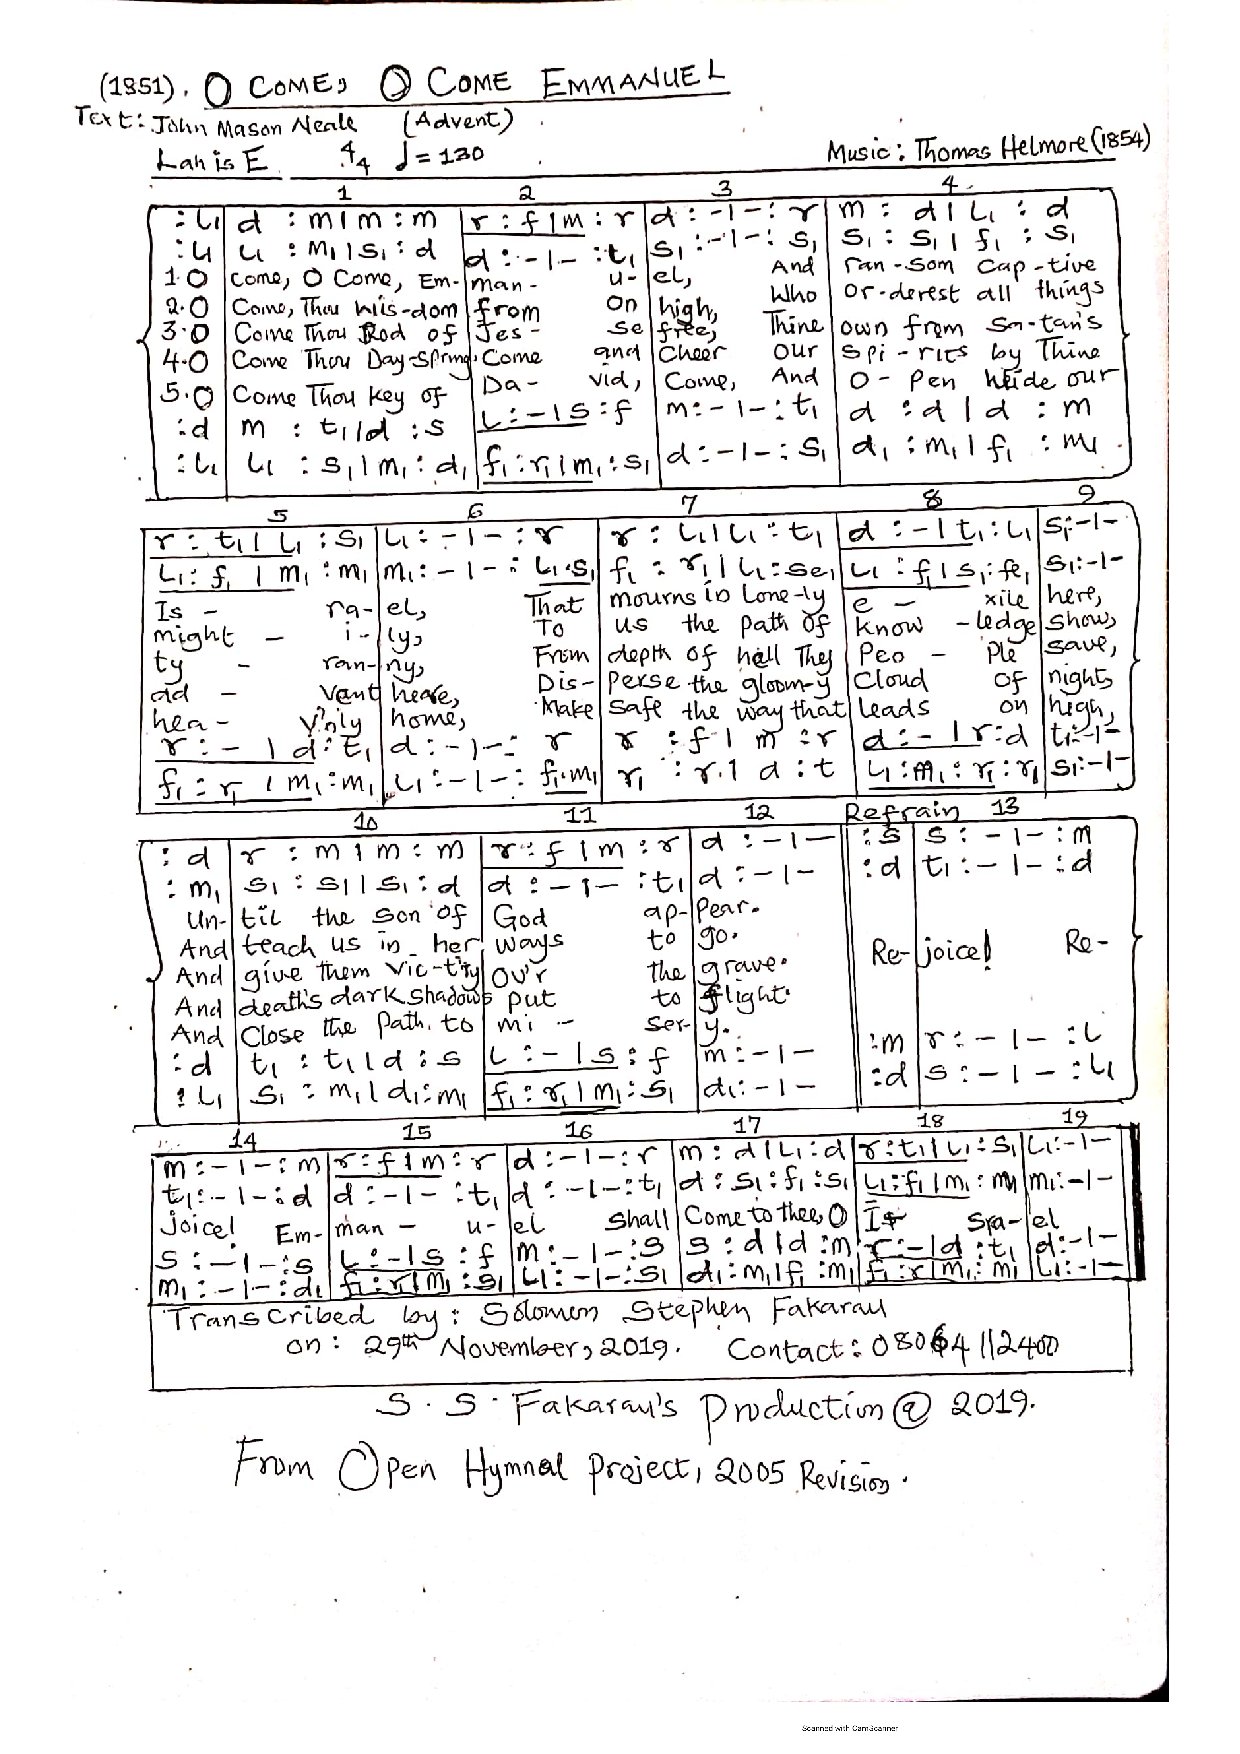 (1851). O COME, O COME EMMANUEL
Text: John Mason Neale (Advent)
Lah is E 4/4 ♩=120 Music: Thomas Helmore (1854)
1 2 3 4
:l₁ | d : m | m : m | r : f | m : r | d : - | - : r | m : d | l₁ : d
:l₁ | l₁ : m₁ | s₁ : d | d : - | - : t₁ | s₁ : - | - : s₁ | s₁ : s₁ | f₁ : s₁
1.O Come, O Come, Em- man- u- el, And ran-som Cap-tive
2.O Come, Thou Wis-dom from on high, Who or-derest all things
3.O Come Thou Rod of Jes- se free, Thine own from Sa-tan's
4.O Come Thou Day-Spring, Come and Cheer our Spi-rits by Thine
5.O Come Thou Key of Da- vid, Come, And O-Pen wide our
:d | m : t₁ | d : s | l : - | s : f | m : - | - : t₁ | d : d | d : m
:l₁ | l₁ : s₁ | m₁ : d₁ | f₁ : r₁ | m₁ : s₁ | d : - | - : s₁ | d₁ : m₁ | f₁ : m₁
5 6 7 8 9
r : t₁ | l₁ : s₁ | l₁ : - | - : r | r : l₁ | l₁ : t₁ | d : - | t₁ : l₁ | s₁ : - | -
l₁ : f₁ | m₁ : m₁ | m₁ : - | - : l₁.s₁ | f₁ : r₁ | l₁ : se₁ | l₁ : f₁ | s₁ : fe₁ | s₁ : - | -
Is - ra- el, That mourns in Lone-ly e - xile here,
might - i- ly, To us the path of know - ledge show,
ty - ran- ny, From depth of hell They Peo - Ple save,
ad - vent here, Dis- Perse the gloom-y Cloud of night,
hea - v'nly home, Make safe the way that leads on high,
r : - | d : t₁ | d : - | - : r | r : f | m : r | d : - | r : d | t₁ : - | -
f₁ : r₁ | m₁ : m₁ | l₁ : - | - : f₁.m₁ | r₁ : r.1 d : t | l₁ : m₁ : r₁ : r₁ | s₁ : - | -
10 11 12 Refrain 13
:d | r : m | m : m | r : f | m : r | d : - | - || :s | s : - | - : m
:m₁ | s₁ : s₁ | s₁ : d | d : - | - : t₁ | d : - | - || :d | t₁ : - | - : d
Un- til the son of God ap- pear.
And teach us in her ways to go. Re- joice! Re-
And give them Vic-t'ry ov'r the grave.
And death's dark shadows put to flight.
And Close the Path to mi - ser- y.
:d | t₁ : t₁ | d : s | l : - | s : f | m : - | - || :m | r : - | - : l
:l₁ | s₁ : m₁ | d₁ : m₁ | f₁ : r₁ | m₁ : s₁ | d₁ : - | - || :d | s : - | - : l₁
14 15 16 17 18 19
m : - | - : m | r : f | m : r | d : - | - : r | m : d | l₁ : d | r : t₁ | l₁ : s₁ | l₁ : - | -
t₁ : - | - : d | d : - | - : t₁ | d : - | - : t₁ | d : s₁ : f₁ : s₁ | l₁ : f₁ | m₁ : m₁ | m₁ : - | -
joice! Em- man - u- el shall Come to thee, O Is sra-el
s : - | - : s | l : - | s : f | m : - | - : s | s : d | d : m | r : - | d : t₁ | d : - | -
m₁ : - | - : d₁ | f₁ : r₁ | m₁ : s₁ | l₁ : - | - : s₁ | d₁ : m₁ | f₁ : m₁ | f₁ : r₁ | m₁ : m₁ | l₁ : - | -
Transcribed by: Solomon Stephen Fakarau
on: 29th November, 2019. Contact: 08064112400
S. S. Fakarau's Production @ 2019.
From Open Hymnal Project, 2005 Revision.
Scanned with CamScanner